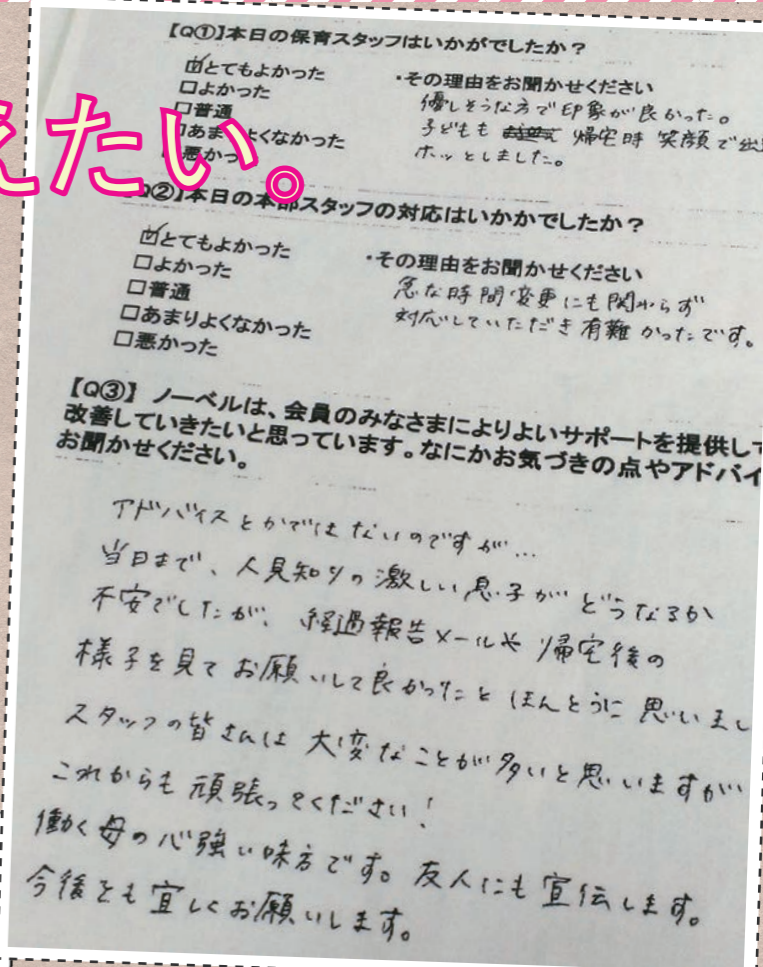 えたい。
【Q①】本日の保育スタッフはいかがでしたか？
☑とてもよかった
□よかった
□普通
□あまりよくなかった
悪かっ
・その理由をお聞かせください
優しそうな方で印象が良かった。
子どもも 帰宅時 笑顔で出
ホッとしました。
【Q②】本日の本部スタッフの対応はいかかでしたか？
☑とてもよかった
□よかった
□普通
□あまりよくなかった
□悪かった
・その理由をお聞かせください
急な時間変更にも関わらず
対応していただき有難かったです。
【Q③】 ノーベルは、会員のみなさまによりよいサポートを提供して
改善していきたいと思っています。なにかお気づきの点やアドバイ
お聞かせください。
アドバイスとかではないのですが…
当日まで、人見知りの激しい息子がどうなるか
不安でしたが、経過報告メールや帰宅後の
様子を見てお願いして良かったとほんとうに思いまし
スタッフの皆さんは大変なことが多いと思いますが
これからも頑張ってください！
働く母の心強い味方です。友人にも宣伝します。
今後とも宜しくお願いします。